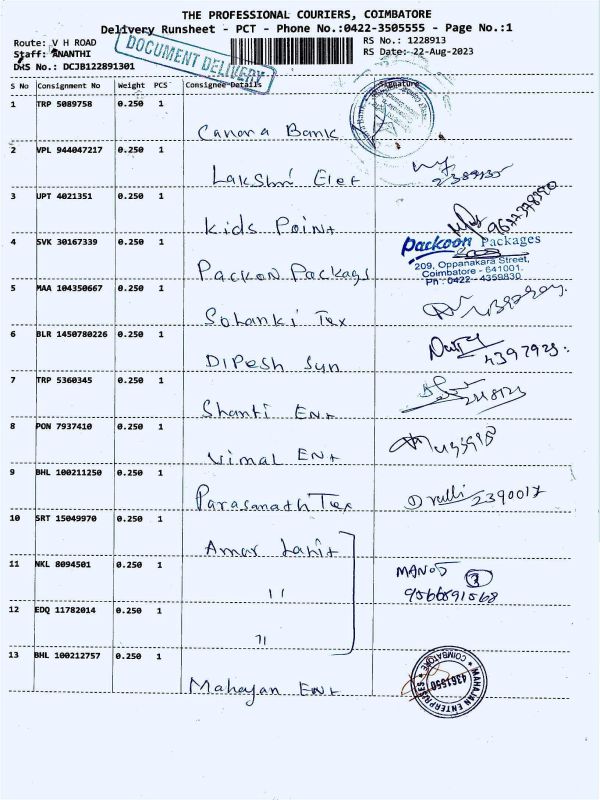 THE PROFESSIONAL COURIERS, COIMBATORE
Delivery Runsheet - PCT - Phone No.:0422-3505555 - Page No.:1
Route: V H ROAD
RS No.: 1228913
Staff: ANANTHI
RS Date: 22-Aug-2023
DOCUMENT DELIVERY
DWS No.: DCJB122891301
S No Consignment No Weight PCS Consignee Details Signature
1 TRP 5089758 0.250 1
Canara Bank
2 VPL 944047217 0.250 1
Lakshmi Elet
3 UPT 4021351 0.250 1
Kids Point
4 SVK 30167339 0.250 1
Packon Packags
Packoon Packages
209, Oppanakara Street,
Coimbatore - 641001.
Ph : 0422 - 4359830
5 MAA 104350667 0.250 1
Solanki Tex
6 BLR 1450780226 0.250 1
Dipesh Syn
4397923
7 TRP 5360345 0.250 1
Shanti Ent
8 PON 7937410 0.250 1
Vimal Ent
9 BHL 100211250 0.250 1
Parasanath Tex
2390017
10 SRT 15049970 0.250 1
Amar Lahit
11 NKL 8094501 0.250 1
11
MANOJ 3
9566591568
12 EDQ 11782014 0.250 1
11
13 BHL 100212757 0.250 1
Mahajan Ent
MAHAJAN ENTERPRISES * COIMBATORE *
4361550